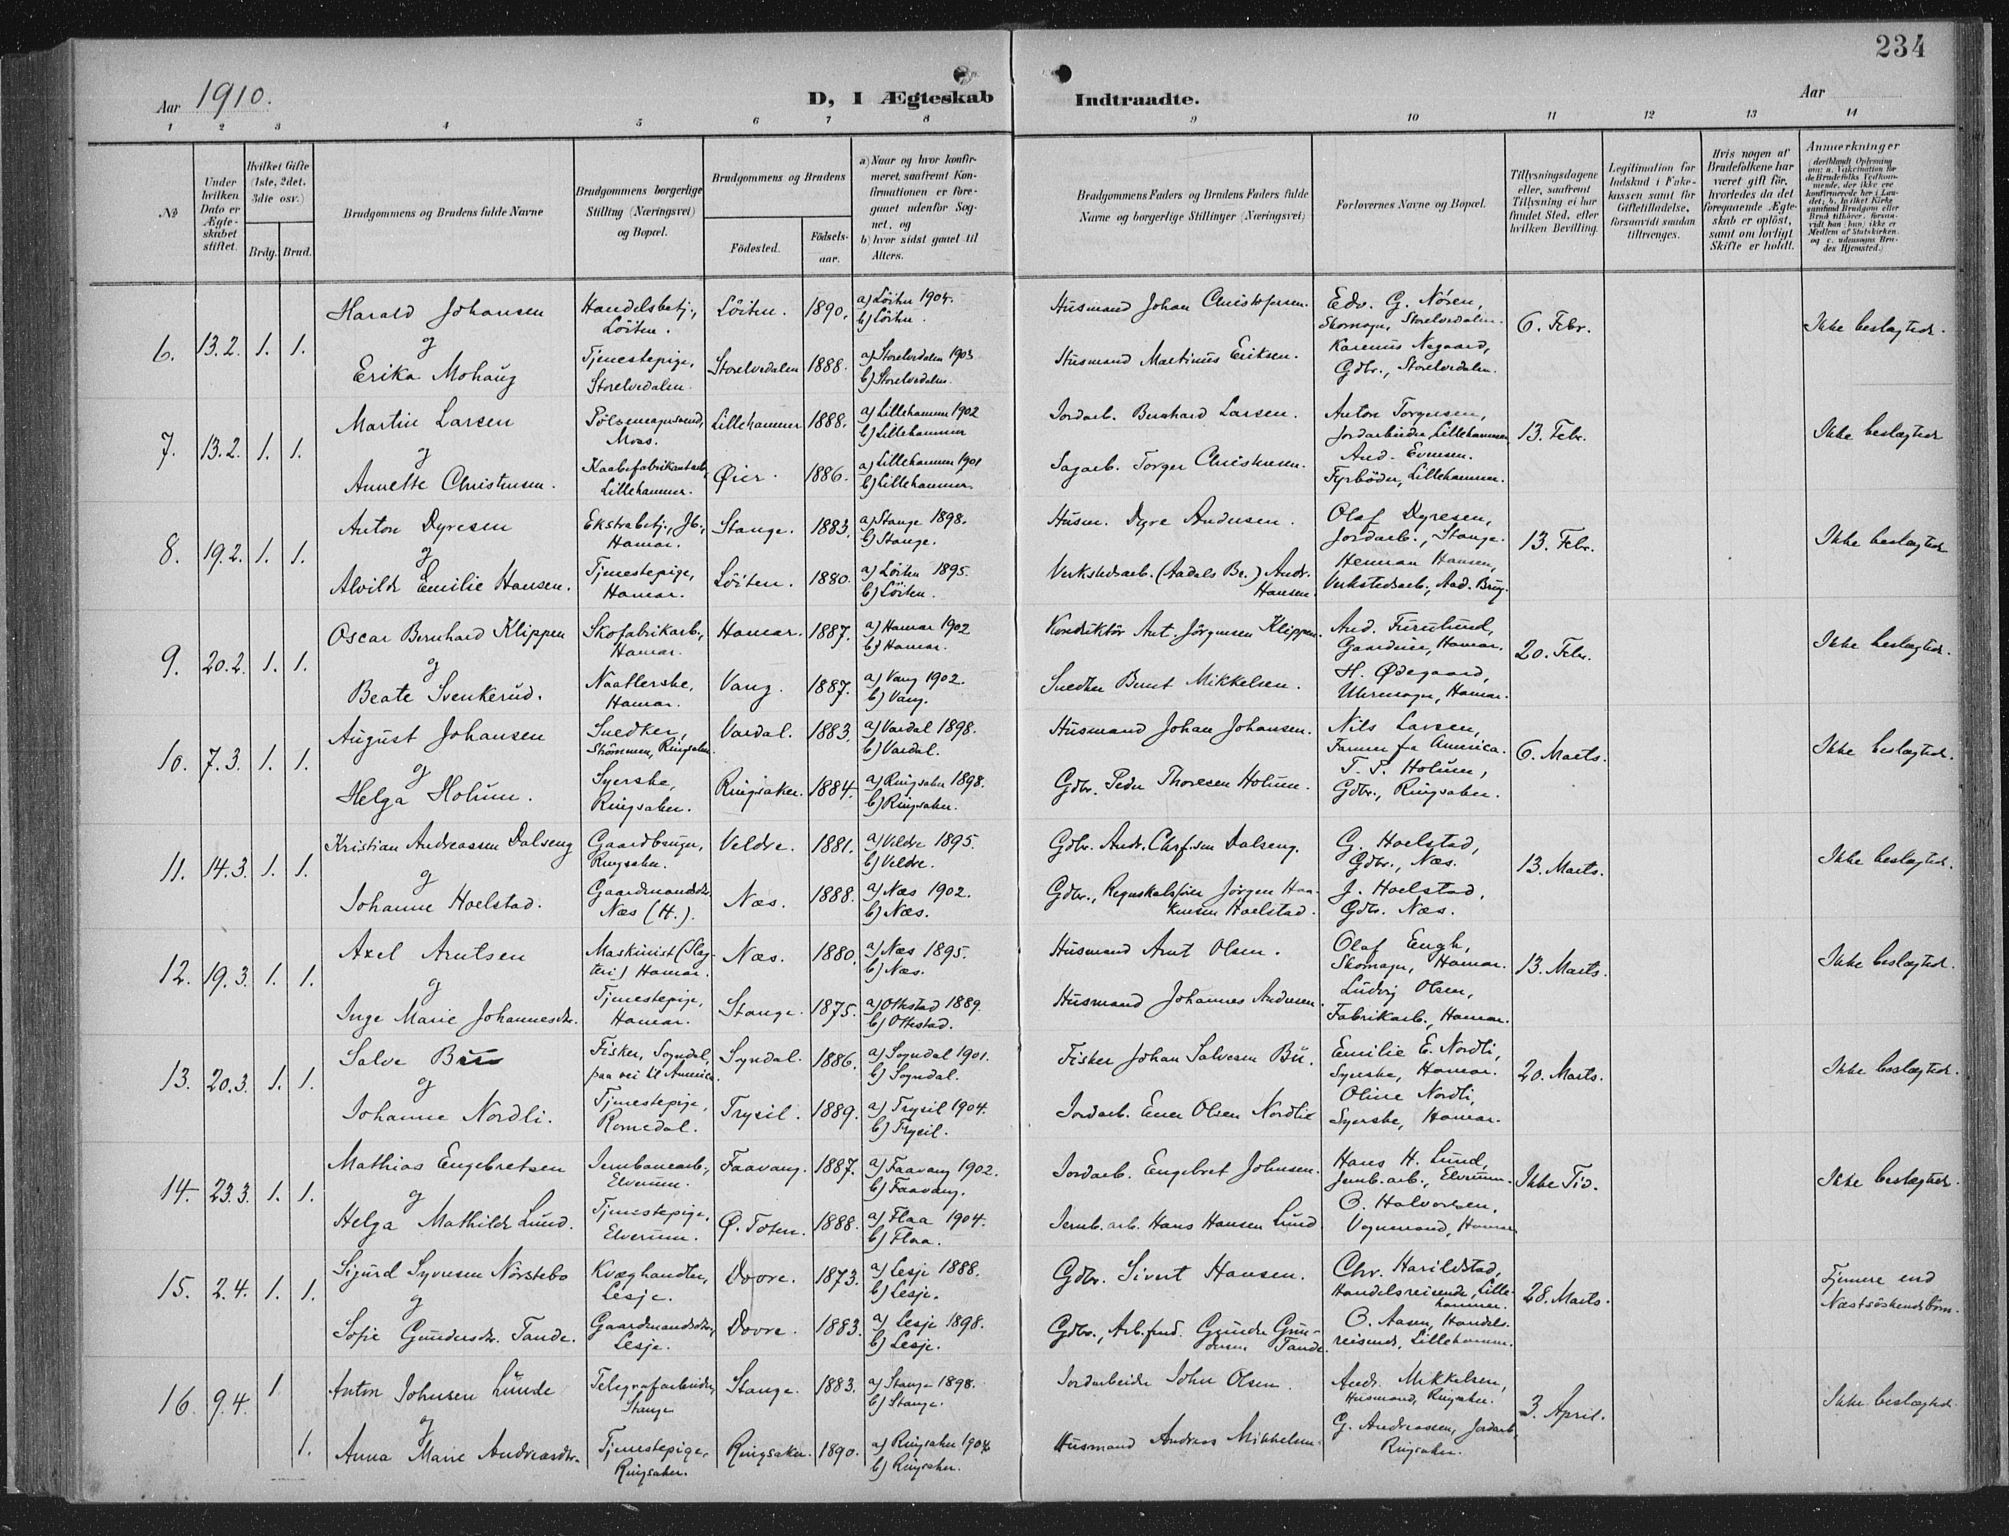 234
Aar 1910.
D, I Ægteskab Indtraadte.
Aar
1 2 3 4 5 6 7 8 9 10 11 12 13 14
No
Under hvilken Dato er Ægteskabet stiftet.
Hvilket Gifte (1ste, 2det, 3die osv.)
Brdg. Brud.
Brudgommens og Brudens fulde Navne
Brudgommens borgerlige Stilling (Næringsvei) og Bopæl.
Brudgommens og Brudens
Fødested.
Fødselsaar.
a) Naar og hvor konfirmeret, saafremt Konfirmationen er foregaaet udenfor Sognet, og
b) hvor sidst gaaet til Alters.
Brudgommens Faders og Brudens Faders fulde Navne og borgerlige Stillinger (Næringsvei)
Forlovernes Navne og Bopæl.
Tillysningsdagene eller, saafremt Tillysning ei har fundet Sted, efter hvilken Bevilling.
Legitimation for Indskud i Enkekassen samt for Giftetilladelse, forsaavidt saadan tiltrænges.
Hvis nogen af Brudefolkene har været gift før, hvorledes da det foregaaende Ægteskab er opløst, samt om lovligt Skifte er holdt.
Anmerkninger
6. 13.2. 1. 1. Harald Johansen Handelsbetj., Löiten. Löiten. 1890. a) Löiten 1904. b) Löiten. Husmand Johan Christophersen. Edv. G. Nören, Skomager, Storelvedalen. 6. Febr. Ikke beslægtede.
og
Erika Mohaug Tjenestepige, Storelvedalen. Storelvedalen 1888. a) Storelvedalen 1903 b) Storelvedalen. Husmand Martinus Eriksen. Karenus Negaard, Gdbr., Storelvedalen.
7. 13.2. 1. 1. Martin Larsen Pölsemagersvend, Moss. Lillehammer 1888. a) Lillehammer 1902 b) Lillehammer Jordarb. Bernhard Larsen. Anton Torgersen, Jordarbeider, Lillehammer 13. Febr. Ikke beslægtede
og
Annette Christensen. Lillehammer. Øier. 1886. a) Lillehammer 1901 b) Lillehammer Sagarb. Torger Christensen. And. Evensen. Fyrbøder, Lillehammer.
8. 19.2. 1. 1. Anton Dyresen Ekstrabetj., Jb., Hamar. Stange. 1883. a) Stange 1898. b) Stange. Husm. Dyre Andersen. Olaf Dyresen, Jordarb., Stange. 13. Febr. Ikke beslægtede
og
Alvilde Emilie Hansen. Tjenestepige, Hamar. Löiten. 1880. a) Löiten 1895. b) Löiten. Verkstedsarb. (Aadals Br.) Andr. Hansen. Herman Hansen, Verkstedsarb., Aad. Brug.
9. 20.2. 1. 1. Oscar Bernhard Klippen Skofabrikarb., Hamar. Hamar. 1887. a) Hamar 1902 b) Hamar. Konduktör Ant. Jörgensen Klippen. And. Furulund, Gaardeier, Hamar. 20. Febr. Ikke beslægtede.
og
Beate Svenkerud. Naatlerske, Hamar. Vang. 1887. a) Vang 1902. b) Vang. Snedker Bernt Mikkelsen. H. Ødegaard, Uhrmager, Hamar.
10. 7.3. 1. 1. August Johansen Snedker, Strömmen, Ringsaker. Vardal. 1883. a) Vardal 1898. b) Vardal. Husmand Johan Johansen. Nils Larsen, Farmer fra America. 6. Marts. Ikke beslægtede.
og
Helga Holum. Syerske, Ringsaker. Ringsaker. 1884. a) Ringsaker 1898. b) Ringsaker. Gdbr. Peder Thoresen Holum. T. P. Holum, Gdbr., Ringsaker.
11. 14.3. 1. 1. Kristian Andreassen Dalseng Gaardbruger, Ringsaker. Veldre. 1881. a) Veldre 1895. b) Veldre. Gdbr. Andr. Chrf.sen Dalseng. G. Hoelstad, Gdbr., Næs. 13. Marts. Ikke beslægtede.
og
Johanne Hoelstad. Gaardmandsdtr. Næs (H.). Næs. 1888. a) Næs 1902. b) Næs. Gdbr., Regnskabsförer Jörgen Haakensen Hoelstad. J. Hoelstad, Gdbr. Næs.
12. 19.3. 1. 1. Axel Arntsen Maskinist (Slagteri) Hamar. Næs. 1880. a) Næs 1895. b) Næs. Husmand Arnt Olsen. Olaf Engh, Skomager, Hamar. 13. Marts. Ikke beslægtede.
og
Inge Marie Johannesdtr. Tjenestepige, Hamar. Stange. 1875. a) Ottestad 1889. b) Ottestad. Husmand Johannes Andersen. Ludvig Olsen, Fabrikarb., Hamar.
13. 20.3. 1. 1. Salve Bu Fisker, Sogndal, paa vei til America. Sogndal. 1886. a) Sogndal 1901. b) Sogndal. Fisker Johan Salvesen Bu. Emilie E. Nordli, Syerske, Hamar. 20. Marts. Ikke beslægtede.
og
Johanne Nordli. Tjenestepige, Romedal. Trysil. 1889. a) Trysil 1904. b) Trysil. Jordarb. Ener Olsen Nordlie Oline Nordli, Syerske, Hamar.
14. 23.3. 1. 1. Mathias Engebretsen Jernbanearb., Elverum. Faavang. 1887. a) Faavang 1902. b) Faavang. Jordarb. Engebret Johnsen. Hans H. Lund, Jernb.arb., Elverum. Ikke Tid. Ikke beslægtede.
og
Helga Mathilde Lund. Tjenestepige, Elverum. Ø. Toten. 1888. a) Flaa 1904. b) Flaa. Jernb.arb. Hans Hansen Lund O. Halvorsen, Vognmand, Hamar
15. 2.4. 1. 1. Sigurd Syversen Nörstebo Kvæghandler, Lesje. Dovre. 1873. a) Lesje 1888. b) Lesje. Gdbr. Sivert Hansen. Chr. Harildstad, Handelsreisende, Lillehammer. 28. Marts. Fjernere end Næstsöskendebörn.
og
Sofie Gundersdtr. Tande. Gaardmandsdtr., Lesje. Dovre. 1883. a) Lesje 1898. b) Lesje. Gdbr., Arb.fmd. Gunder Gundersen Tande. O. Aasen, Handelsreisende, Lillehammer.
16. 9.4. 1. Anton Johnsen Lunde Telegrafarbeider, Stange Stange. 1883. a) Stange 1898. b) Stange. Jordarbeider John Olsen. Andr. Mikkelsen, Husmand, Ringsaker. 3. April. Ikke beslægtede.
og
1. Anna Marie Andreasdtr. Tjenestepige, Ringsaker. Ringsaker. 1890. a) Ringsaker 1904 b) Ringsaker. Husmand Andreas Mikkelsen. G. Andreassen, Jordarb., Ringsaker.